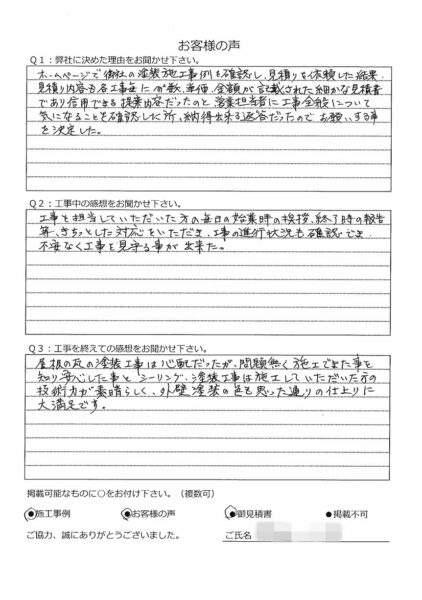 お客様の声
Q1：弊社に決めた理由をお聞かせ下さい。
ホームページで御社の塗装施工事例を確認し、見積りを依頼した結果
見積り内容も各工事毎にm数、単価、金額が記載された細かな見積書
であり信用できる提案内容だったのと営業担当者に工事全般について
気になることを確認した所、納得出来る返答だったのでお願いする事
を決定した。
Q2：工事中の感想をお聞かせ下さい。
工事を担当していただいた方の毎日の始業時の挨拶、終了時の報告
等、きちっとした対応をいただき、工事の進行状況も確認でき
不安なく工事を見守る事が出来た。
Q3：工事を終えての感想をお聞かせ下さい。
屋根の瓦の塗装工事は心配だったが、問題無く施工できた事を
知り安心した事とシーリング、塗装工事は施工していただいた方の
技術力が素晴らしく、外壁塗装の色も思った通りの仕上りに
大満足です。
掲載可能なものに○をお付け下さい。（複数可）
●施工事例 ●お客様の声 ●御見積書 ●掲載不可
ご協力、誠にありがとうございました。 ご氏名